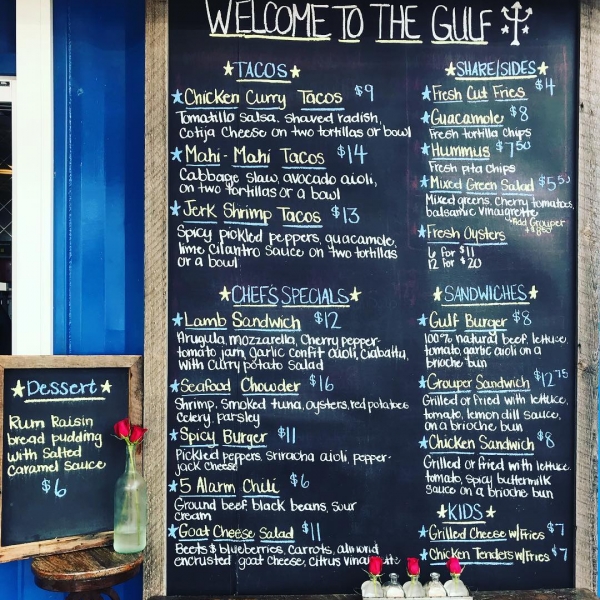 WELCOME TO THE GULF
TACOS
Chicken Curry Tacos $9
Tomatillo salsa, shaved radish,
Cotija Cheese on two tortillas or bowl
Mahi-Mahi Tacos $14
Cabbage slaw, avocado aioli,
on two tortillas or a bowl
Jerk Shrimp Tacos $13
Spicy pickled peppers, guacamole,
lime cilantro sauce on two tortillas
or a bowl
CHEF'S SPECIALS
Lamb Sandwich $12
Arugula, mozzarella, Cherry pepper-
tomato jam, garlic confit aioli, ciabatta,
with curry potato Salad
Seafood Chowder $16
Shrimp, smoked tuna, oysters, red potatoes
Celery, parsley
Spicy Burger $11
Pickled peppers, sriracha aioli, pepper-
jack cheese
5 Alarm Chili $6
Ground beef, black beans, sour
cream
Goat Cheese Salad $11
Beets & blueberries, Carrots, almond
encrusted goat cheese, citrus vinaigrette
SHARE/SIDES
Fresh Cut Fries $4
Guacamole $8
Fresh tortilla chips
Hummus $7.50
Fresh pita chips
Mixed Green Salad $5.50
Mixed greens, cherry tomatoes,
balsamic vinaigrette
+Add Grouper
Fresh Oysters
6 for $11
12 for $20
SANDWICHES
Gulf Burger $8
100% natural beef, lettuce,
tomato, garlic aioli on a
brioche bun
Grouper Sandwich $12.75
Grilled or fried with lettuce,
tomato, lemon dill sauce,
on a brioche bun
Chicken Sandwich $8
Grilled or fried with lettuce,
tomato, spicy buttermilk
sauce on a brioche bun
KIDS
Grilled Cheese w/Fries $7
Chicken Tenders w/Fries $7
Dessert
Rum Raisin
bread pudding
with Salted
Caramel sauce
$6